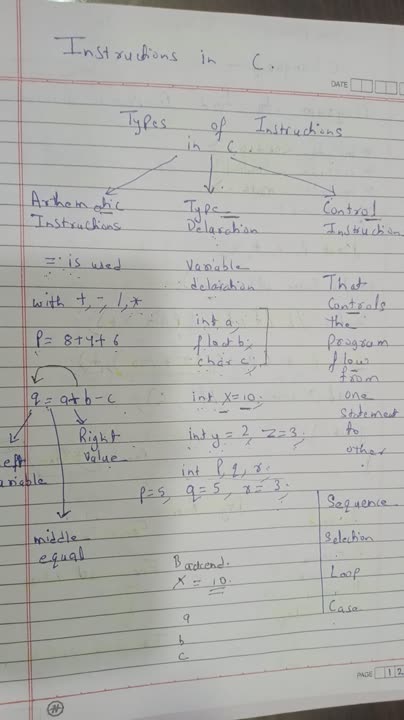 Instructions in C.
DATE
Types of Instructions
in C
Arthematic
Instructions
=: is used
with +, -, /, *
P = 8+4+6
q = a+b-c
Left
variable
Right
value
middle
equal
Type
Delaraction
variable
delaraction
int a;
float b;
char c;
int x=10;
int y = 2, z = 3;
int p, q, r;
p=5, q=5, r=3;
Backend.
x = 10.
a
b
c
Control
Instruction
That
Controls
the
program
flow
from
one
statement
to
other
Sequence
Selection
Loop
Case
PAGE 1 2